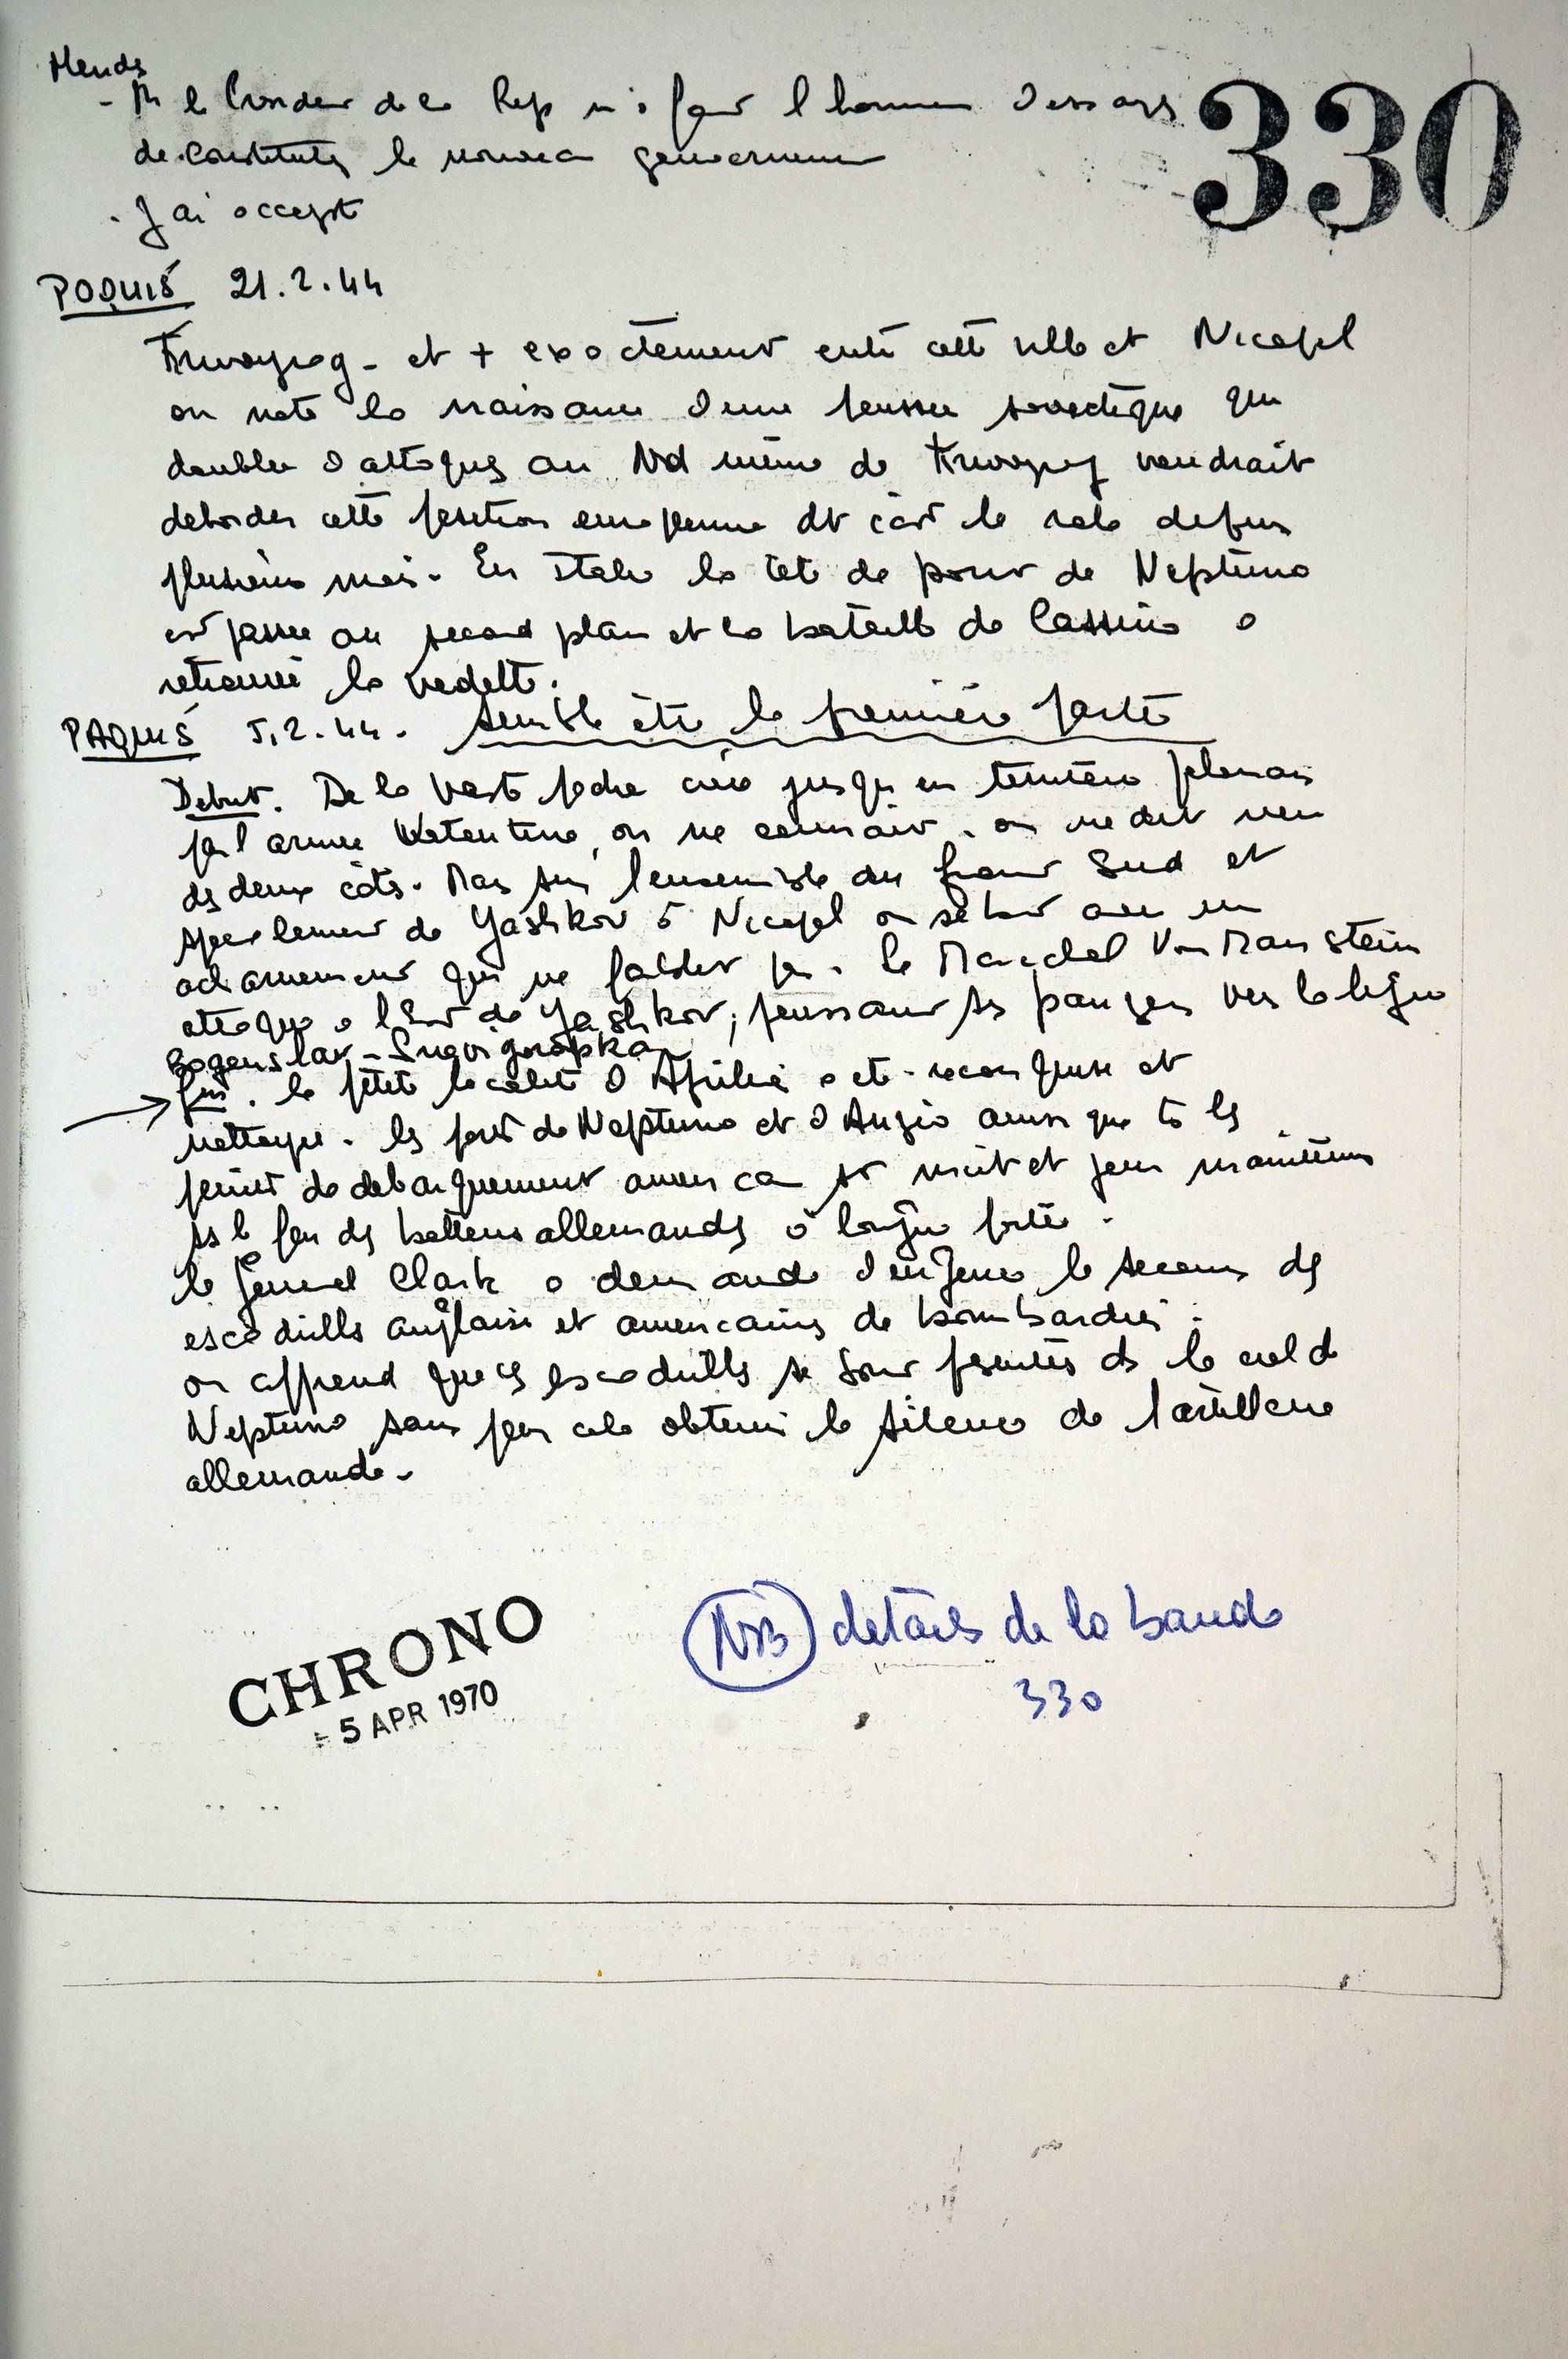 Mendes
330
- M le President de la Rep m'a fait l'honneur
de constituer le nouveau gouvernement
- J'ai accepté
PAQUIS 21.2.44
et + exactement entre cette ville et Nicopol
on note la naissance d'une poussée soviétique qui
doublée d'attaques au Nd même de voudrait
deborder cette position européenne dt c'est le role depuis
plusieurs mois. En Italie la tete de pont de Neptuno
est passée au second plan et la bataille de Cassino a
retrouvé la vedette.
PAQUIS 5.2.44. semble être la première partie
Debut. De la vaste poche créé jusqu'en territoire polonais
par l'armée Watoutine, on ne connait. on ne dit rien
des deux côtés. Mais sur l'ensemble du front Sud et
specialement de Yashkov à Nicopol on se bat avec un
acharnement qui ne faiblit pas. Le Marechal Von Manstein
attaque a l'Est de Yashkov, poussant ses panzers vers la ligne
Boguslav - Snovigorodpka
fin. la petite localité d'Aprilia a eté reconquise et
nettoyée. les ports de Neptuno et d'Anzio ainsi que ts les
points de debarquement americain st nuit et jour maintenus
ss le feu des batteries allemandes à longue portée.
le General Clark a demandé d'urgence le secours des
escadrilles anglaises et americaines de bombardier.
on apprend que ces escadrilles se sont présentées ds le ciel de
Neptuno sans pour cela obtenir le silence de l'artillerie
allemande.
CHRONO
5 APR 1970
NB détails de la bande
330